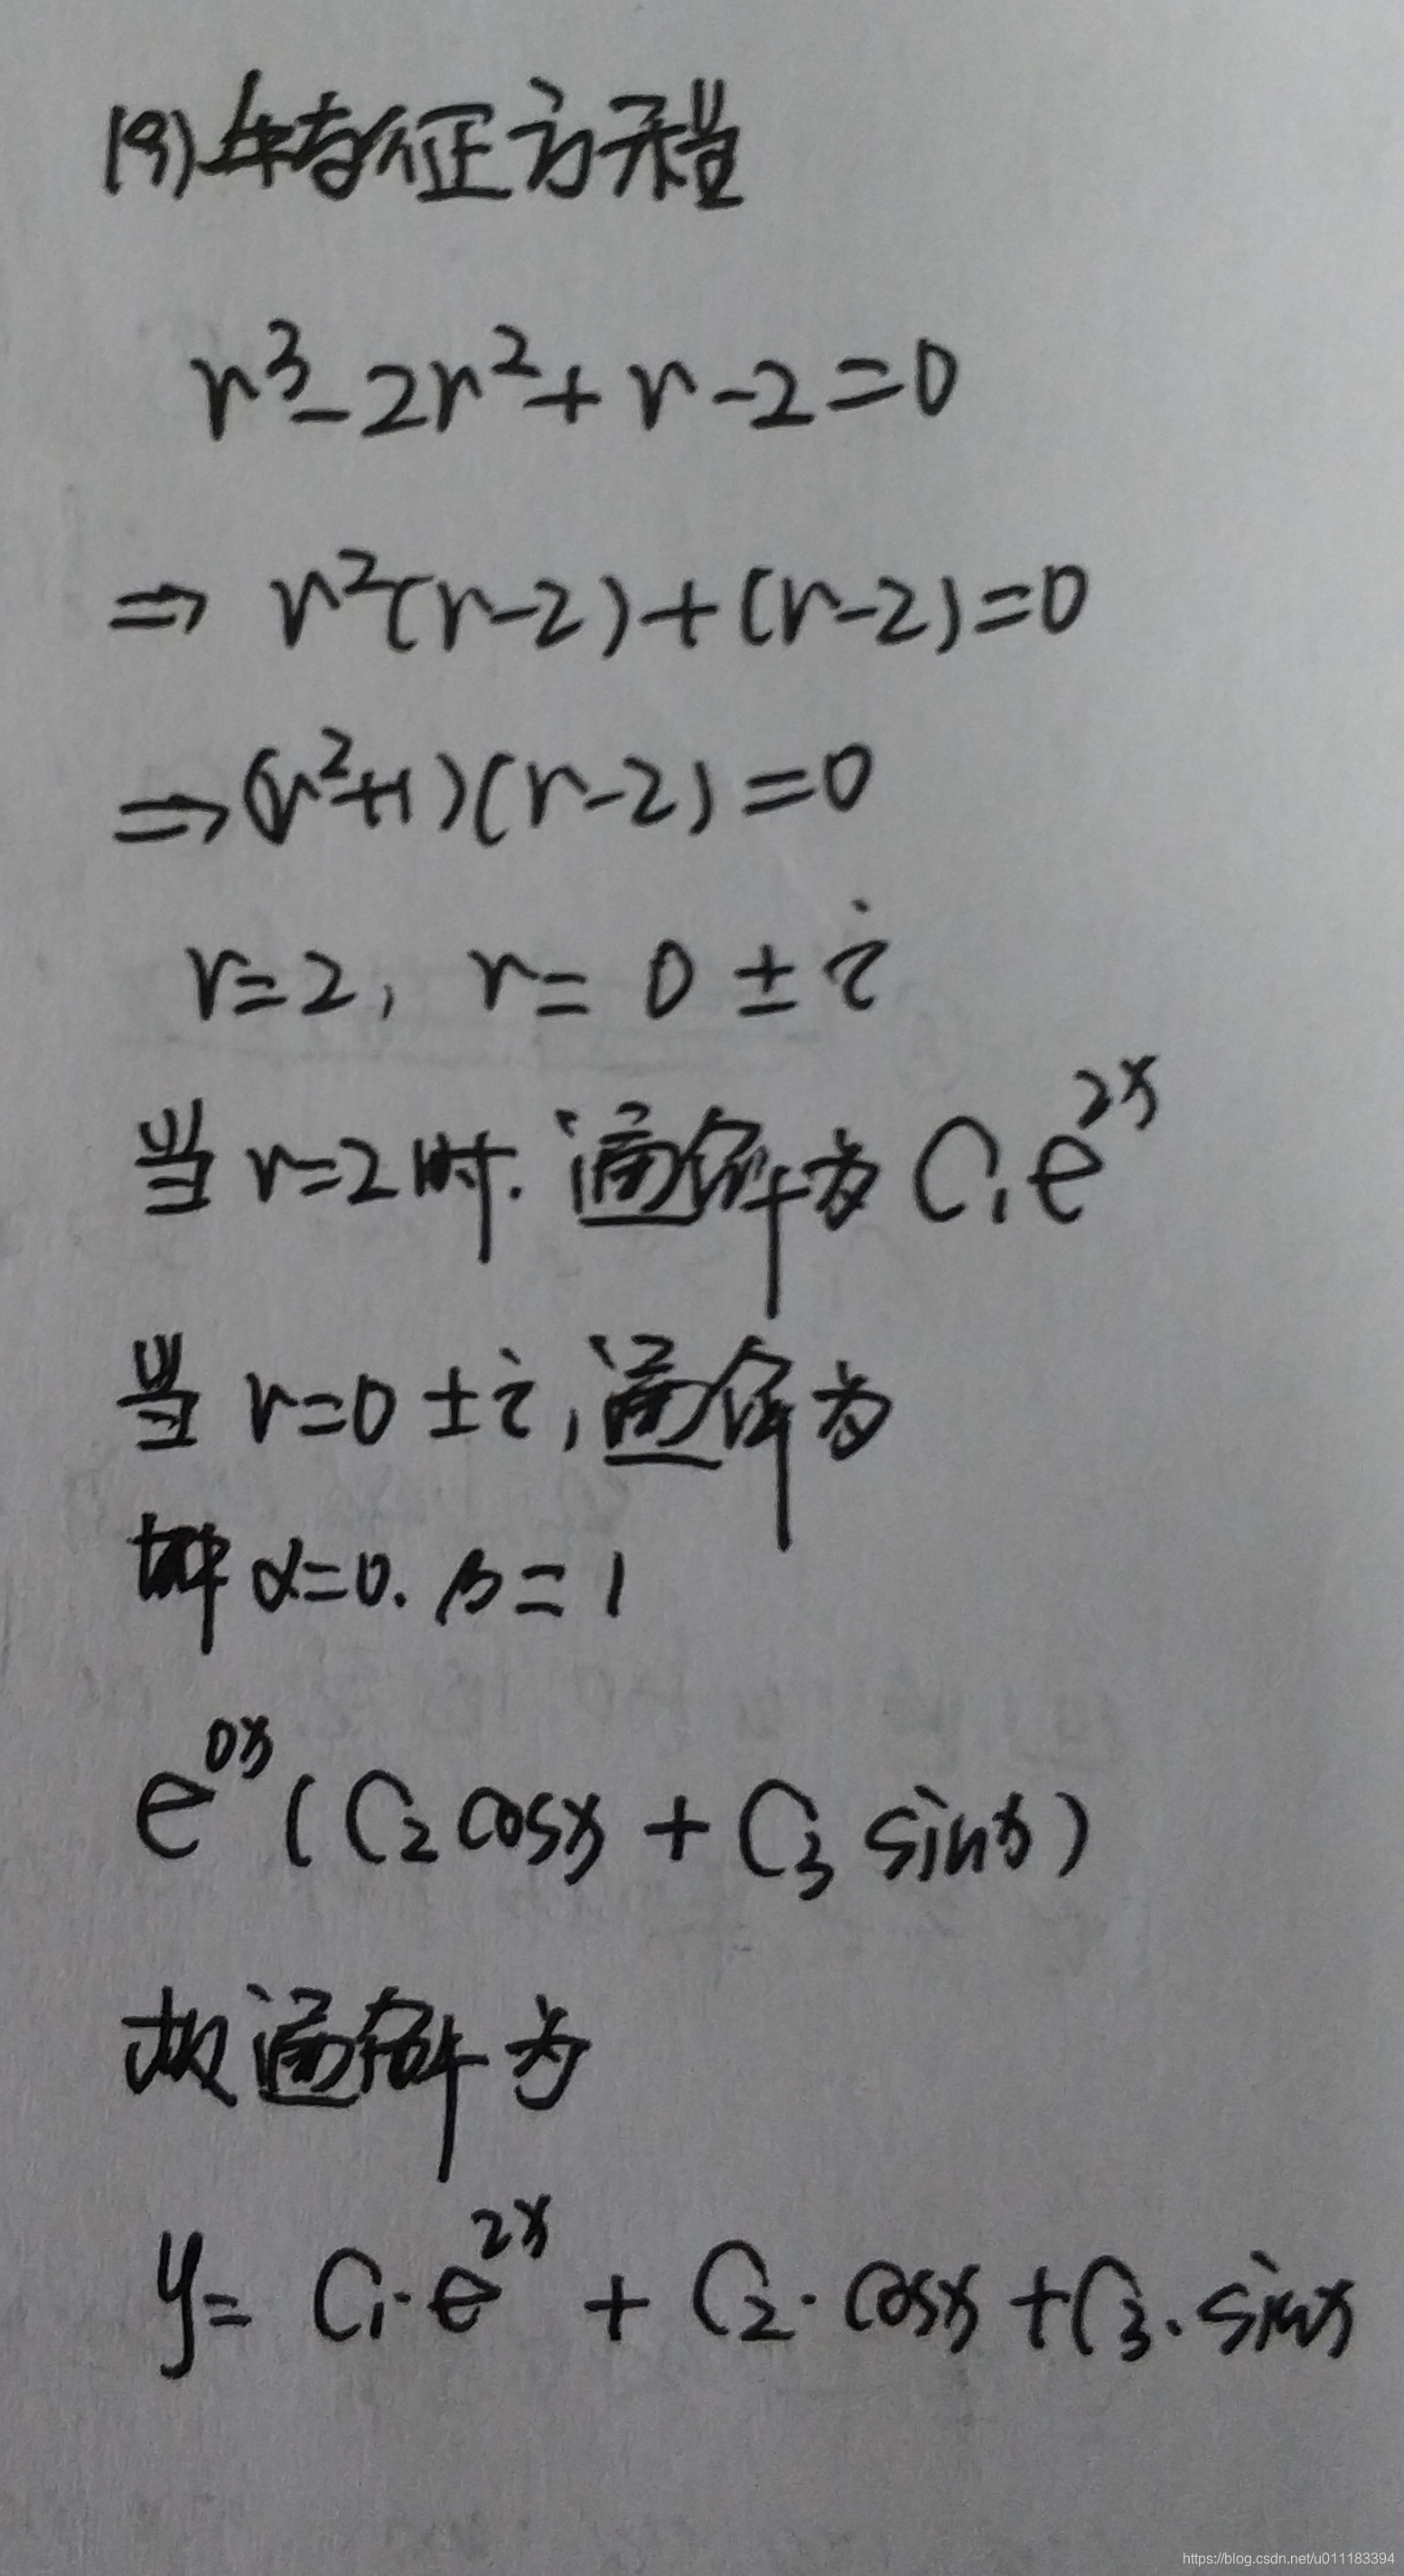 (9) 特征方程
r³-2r²+r-2=0
⇒ r²(r-2)+(r-2)=0
⇒(r²+1)(r-2)=0
r=2, r= 0 ± i
当 r=2时. 通解为 C₁e²ˣ
当 r=0 ±i, 通解为
α=0. β=1
e⁰ˣ(C₂cosx + C₃ sinx)
故通解为
y= C₁·e²ˣ + C₂·cosx+C₃·sinx
https://blog.csdn.net/u011183394